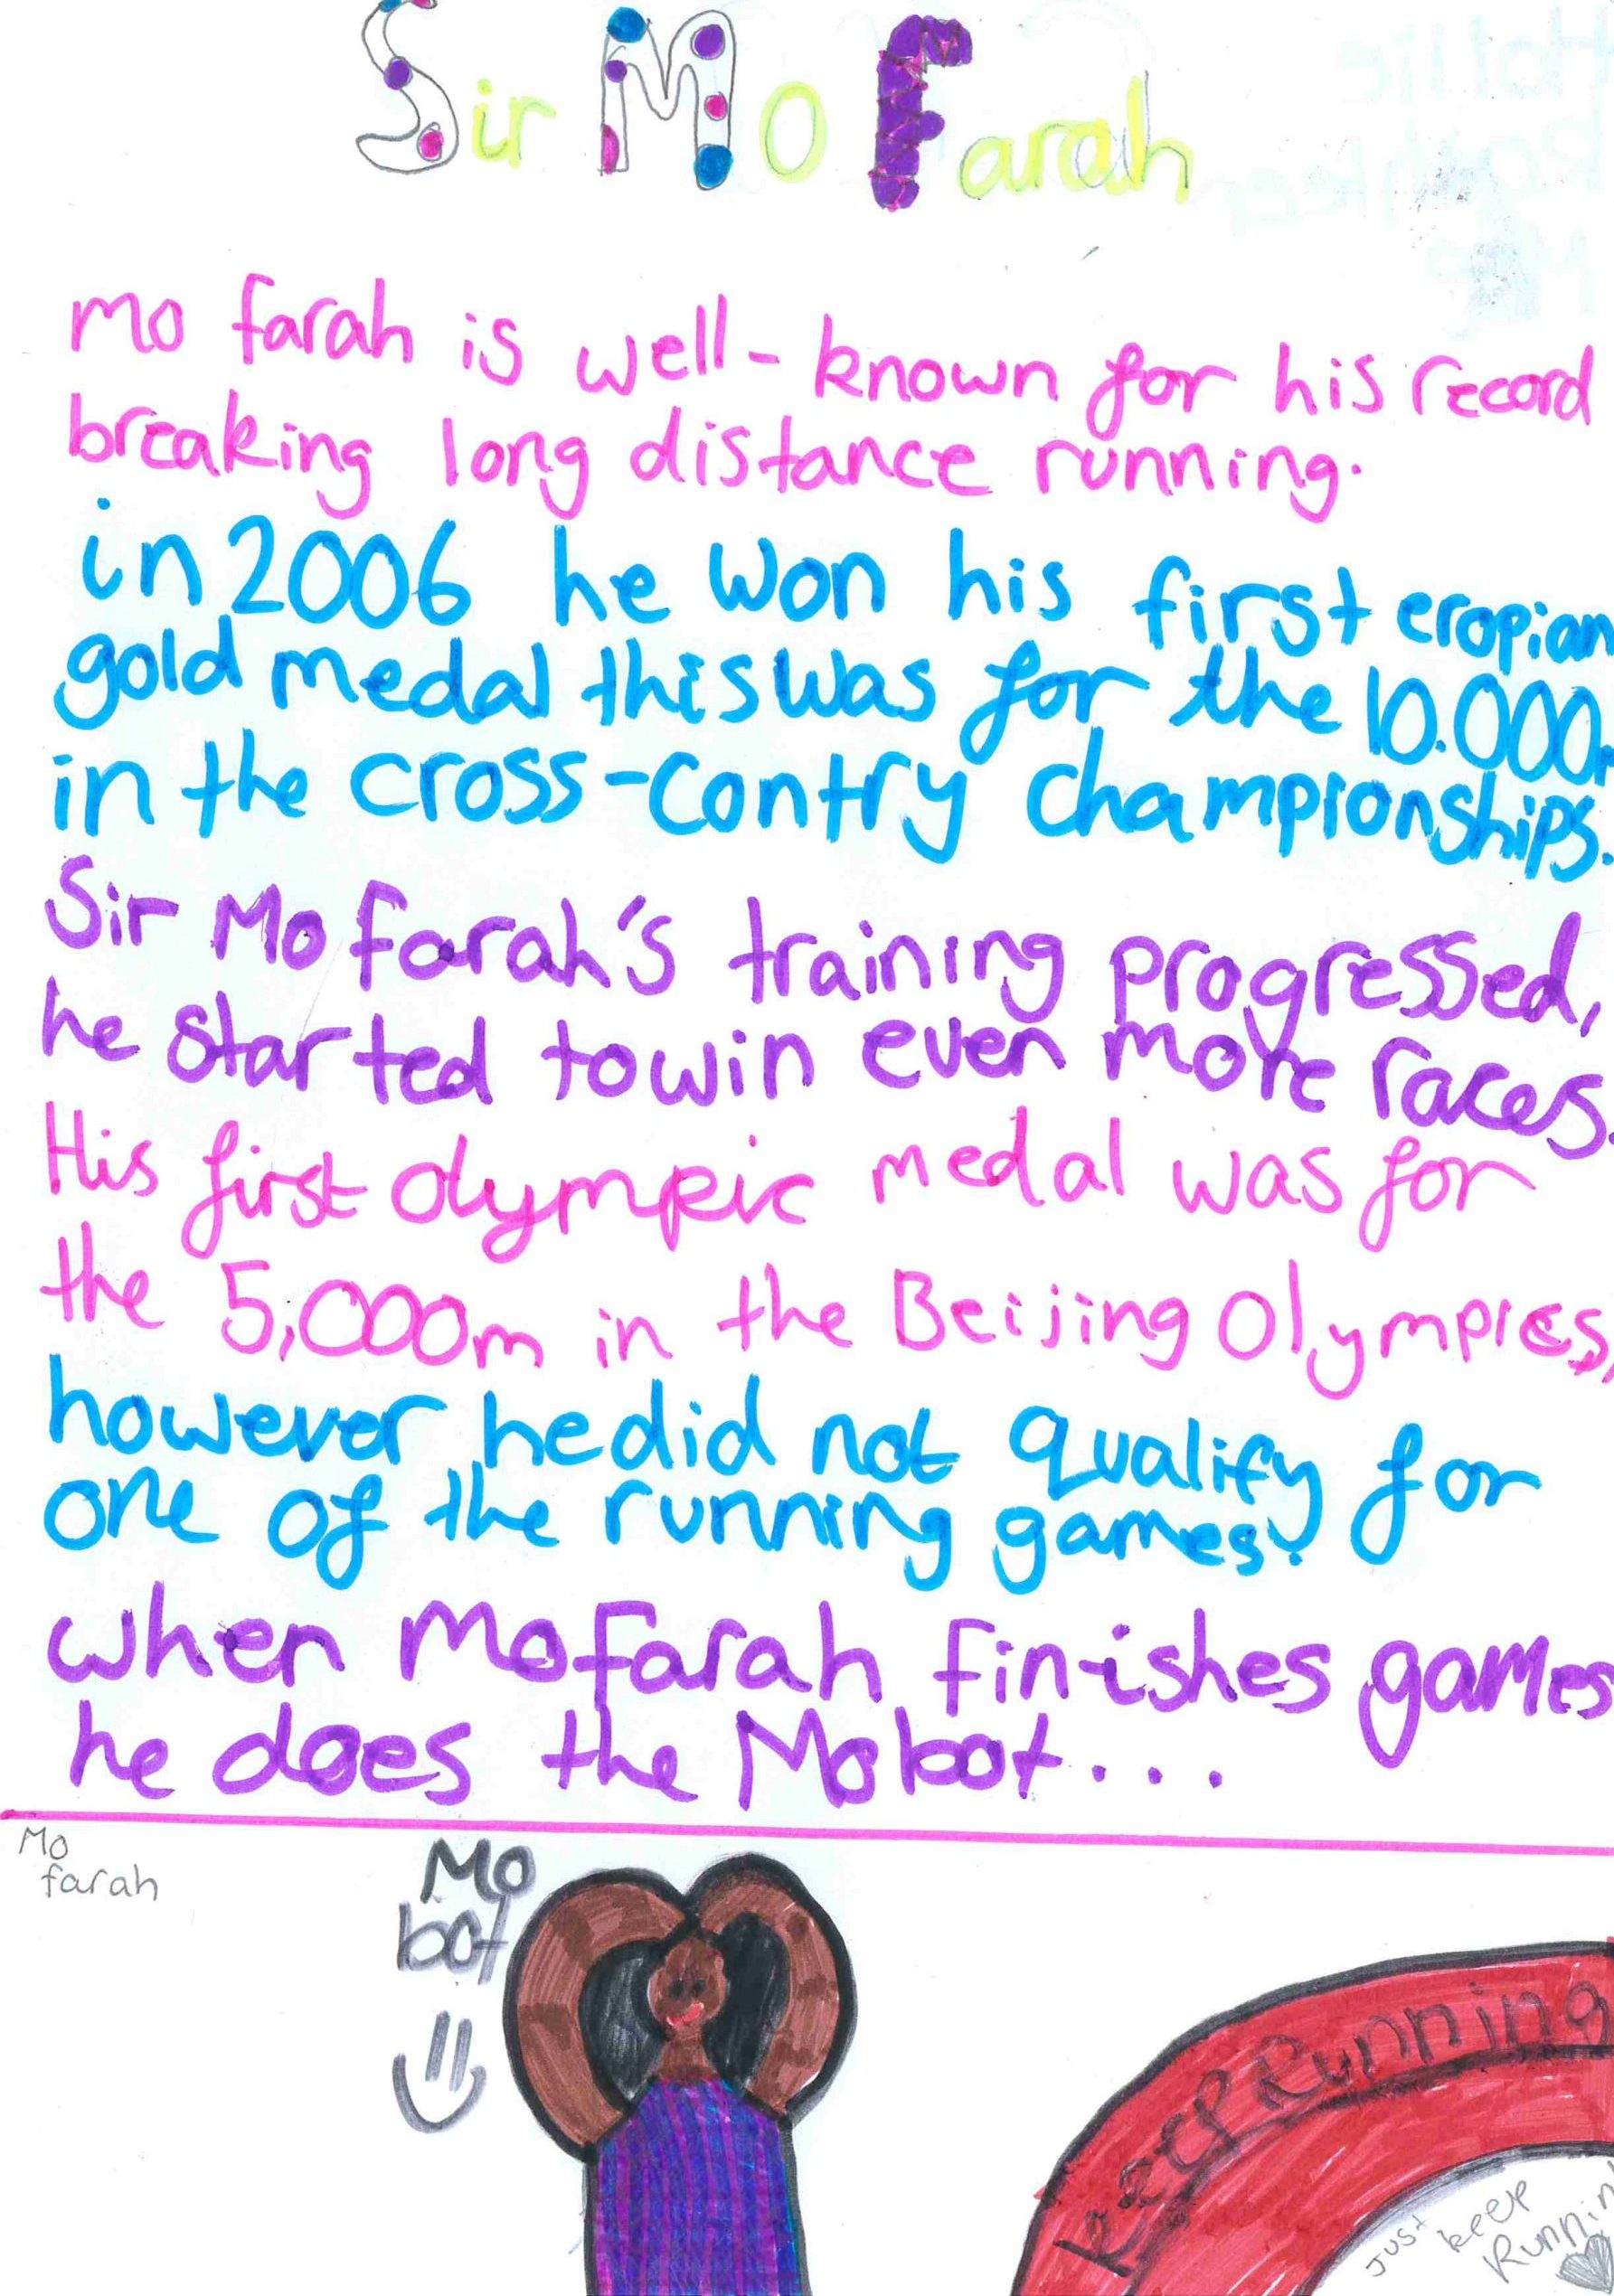 Sir Mo Farah
mo farah is well-known for his record
breaking long distance running.
in 2006 he won his first eropian
gold medal this was for the 10.000m
in the cross-contry championships.
Sir Mo farah's training progressed,
he started to win even more races.
His first olympic medal was for
the 5,000m in the Beijing Olympics,
however he did not qualify for
one of the running games.
when mo farah finishes games
he does the Mobot...
Mo
farah
Mo
bot
keep Running
just
keep
Runnin